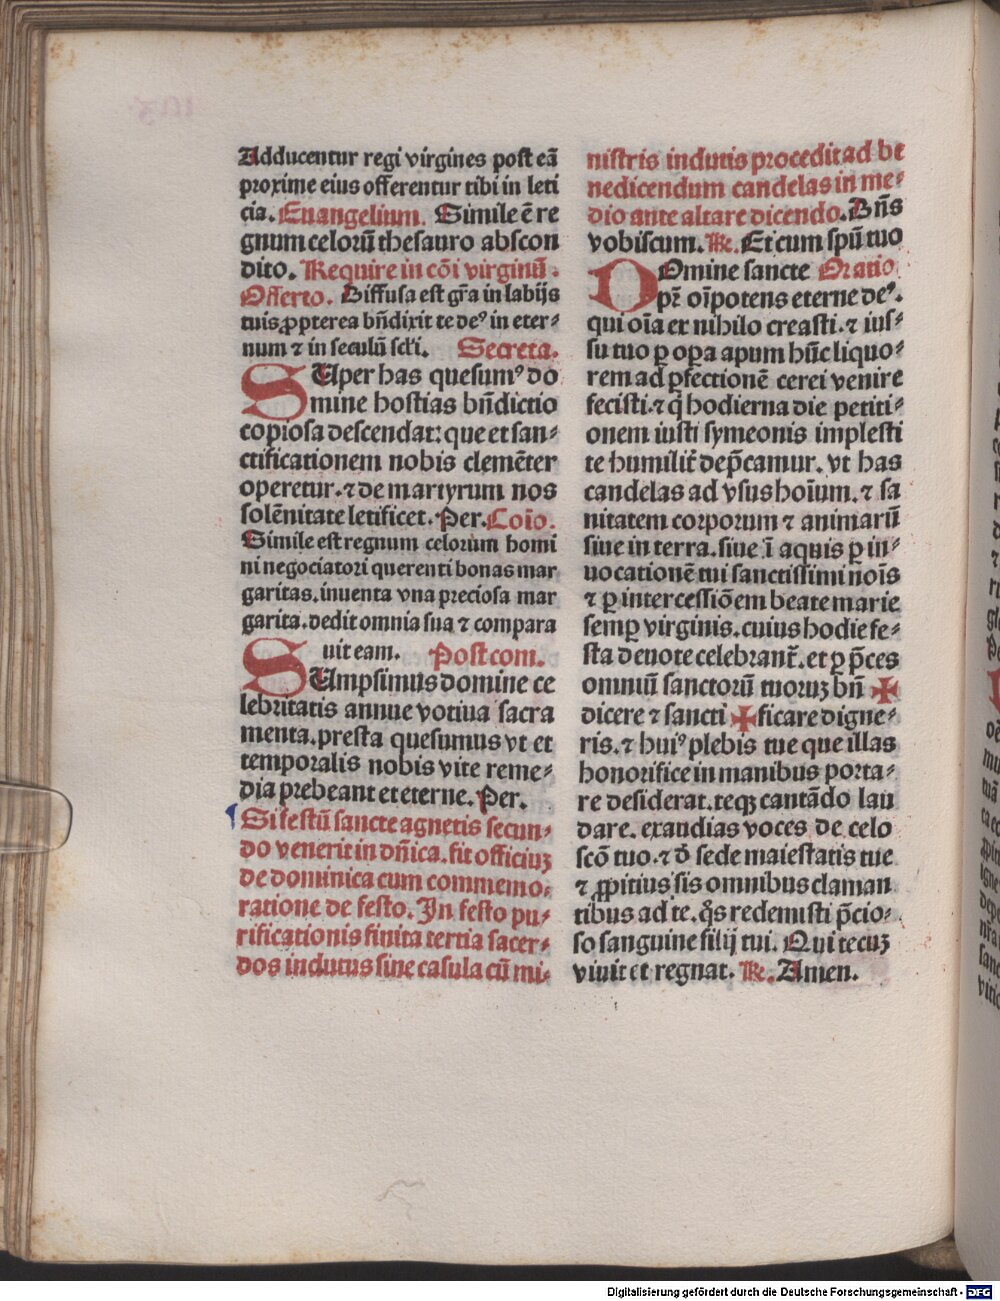 Adducentur regi virgines post eā
proxime eius offerentur tibi in leti
cia. Euangelium. Simile ē re
gnum celorū thesauro abscon
dito. Require in cōi virginū.
Offerto. Diffusa est gr̄a in labijs
tuis ꝓpterea bn̄dixit te deꝰ in eter-
num ⁊ in seculū scl'i. Secreta.
SUper has quesumꝰ do
mine hostias bn̄dictio
copiosa descendat: que et san-
ctificationem nobis clemēter
operetur. ⁊ de martyrum nos
solēnitate letificet. Per. Coīo.
Simile est regnum celorum homi
ni negociatori querenti bonas mar
garitas. inuenta vna preciosa mar
garita. dedit omnia sua ⁊ compara
uit eam. Postcom.
SUmpsimus domine ce
lebritatis annue votiua sacra
menta. presta quesumus vt et
temporalis nobis vite reme-
dia prebeant et eterne. Per.
Si festū sancte agnetis secun-
do venerit in dn̄ica. fit officiuꝫ
de dominica cum commemo-
ratione de festo. In festo pu-
rificationis finita tertia sacer-
dos indutus sine casula cū mi-
nistris indutis procedit ad be
nedicendum candelas in me-
dio ante altare dicendo. Dn̄s
vobiscum. ℟. Et cum spū tuo
DOmine sancte Oratio
pr̄ oīpotens eterne deꝰ.
qui oīa ex nihilo creasti. ⁊ ius-
su tuo ꝑ oꝑa apum hūc liquo-
rem ad ꝑfectionē cerei venire
fecisti. ⁊ q̄ hodierna die petiti-
onem iusti symeonis implesti
te humilit̄ dep̄camur. vt has
candelas ad vsus hoīum. ⁊ sa
nitatem corporum ⁊ animarū
siue in terra. siue ī aquis ꝑ in-
uocationē tui sanctissimi noīs
⁊ ꝑ intercessiōem beate marie
semꝑ virginis. cuius hodie fe-
sta deuote celebrant̄. et ꝑ p̄ces
omniū sanctorū tuoruꝫ bn̄ ✠
dicere ⁊ sancti ✠ ficare digne-
ris. ⁊ huiꝰ plebis tue que illas
honorifice in manibus porta-
re desiderat. teqꝫ cantādo lau
dare. exaudias voces de celo
scō tuo. ⁊ đ sede maiestatis tue
⁊ ꝓpitius sis omnibus claman
tibus ad te. q̄s redemisti p̄cio-
so sanguine filij tui. Qui tecuꝫ
viuit et regnat. ℟. Amen.
Digitalisierung gefördert durch die Deutsche Forschungsgemeinschaft - DFG